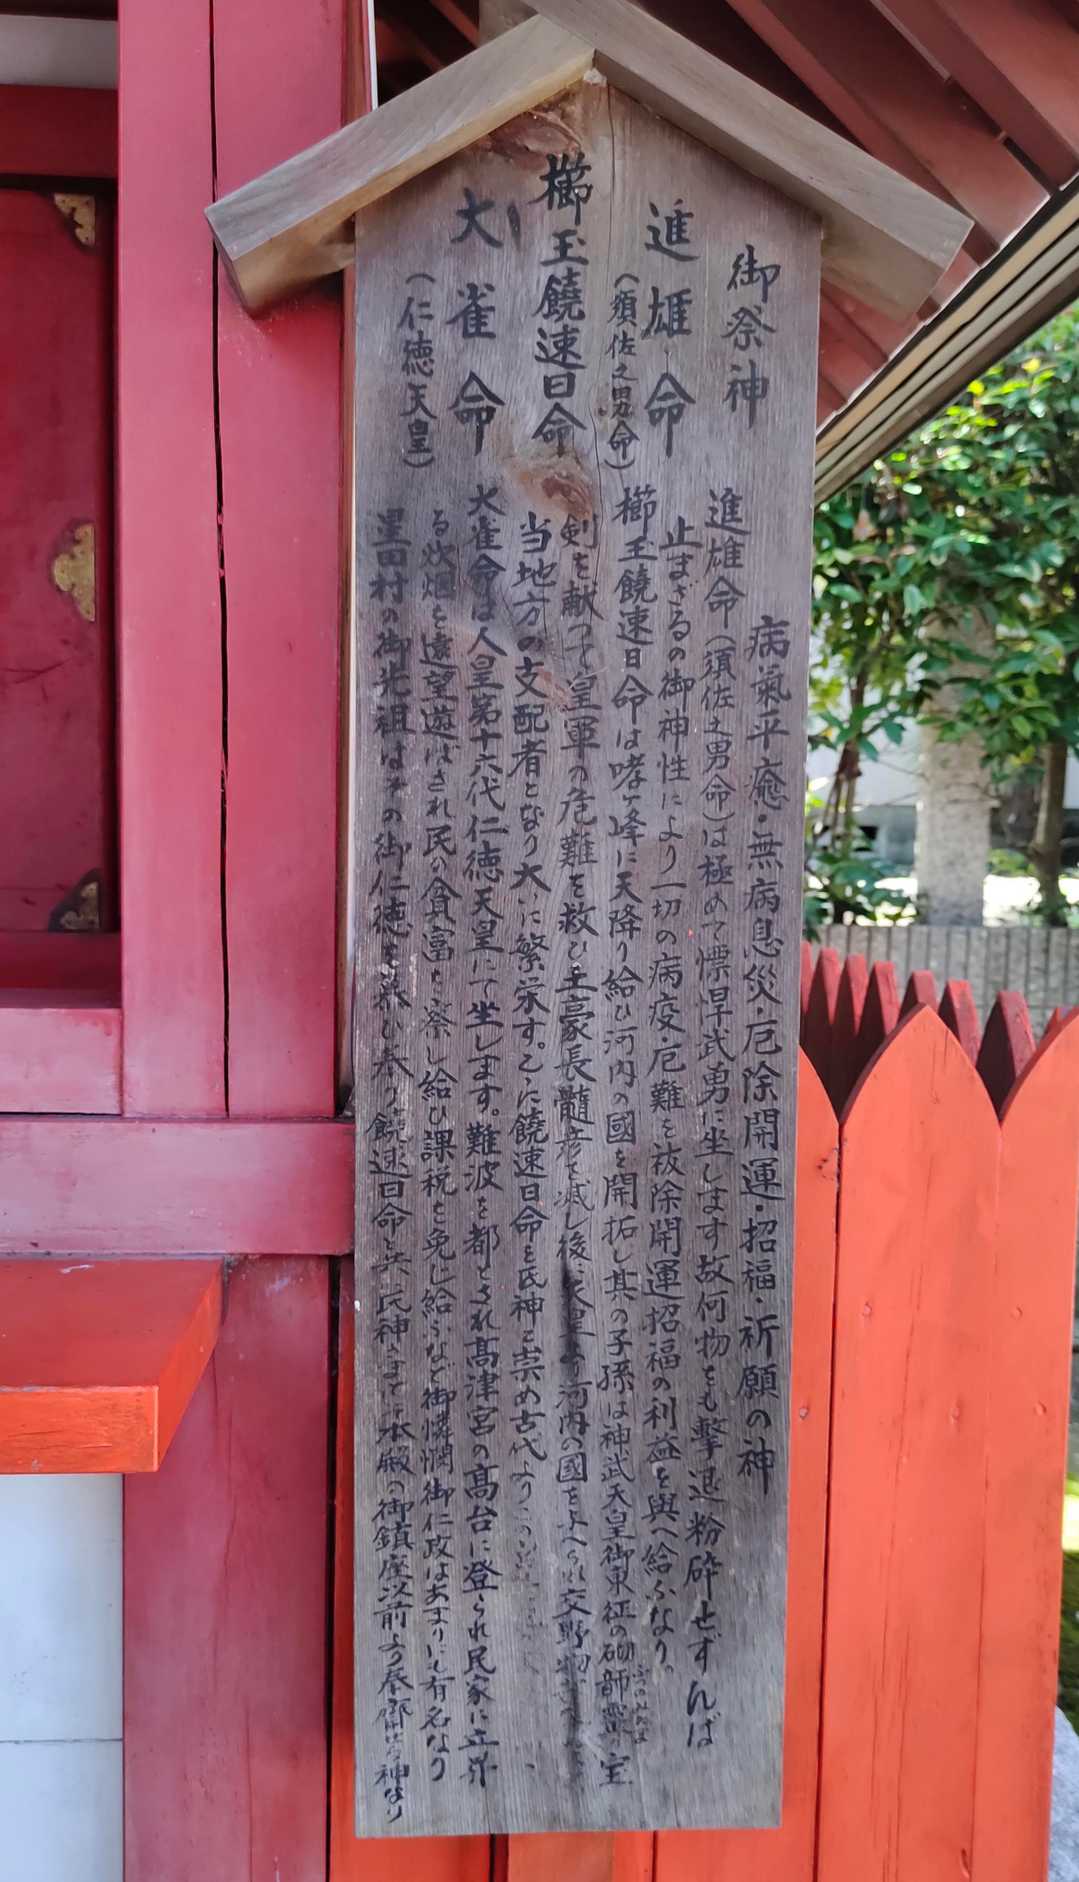 御祭神
進雄命
(須佐之男命)
櫛玉饒速日命
大雀命
(仁徳天皇)
病氣平癒・無病息災・厄除開運・招福・祈願の神
進雄命(須佐之男命)は極めて慓悍武勇に坐します故何物をも擊退粉碎せずんば
止まざるの御神性により一切の病疫・厄難を祓除開運招福の利益を與へ給ふなり。
櫛玉饒速日命は哮ヶ峰に天降り給ひ河内の國を開拓し其の子孫は神武天皇御東征の砌韴靈の宝
剣を献つて皇軍の危難を救ひ土豪長髓彦を滅し後に天皇より河内の國を与へられ交野物部
当地方の支配者となり大いに繁栄す。こゝに饒速日命を氏神と崇め古代よりこの
大雀命は人皇第十六代仁徳天皇にて坐します。難波を都とされ高津宮の高台に登られ民家に立昇
る炊烟を遠望遊ばされ民の貧富を察し給ひ課税を免じ給ふなど御憐憫御仁政はあまりにも有名なり
星田村の御先祖はその御仁徳を慕ひ奉り饒速日命と共に氏神として本殿の御鎮座以前より奉齋せる神なり